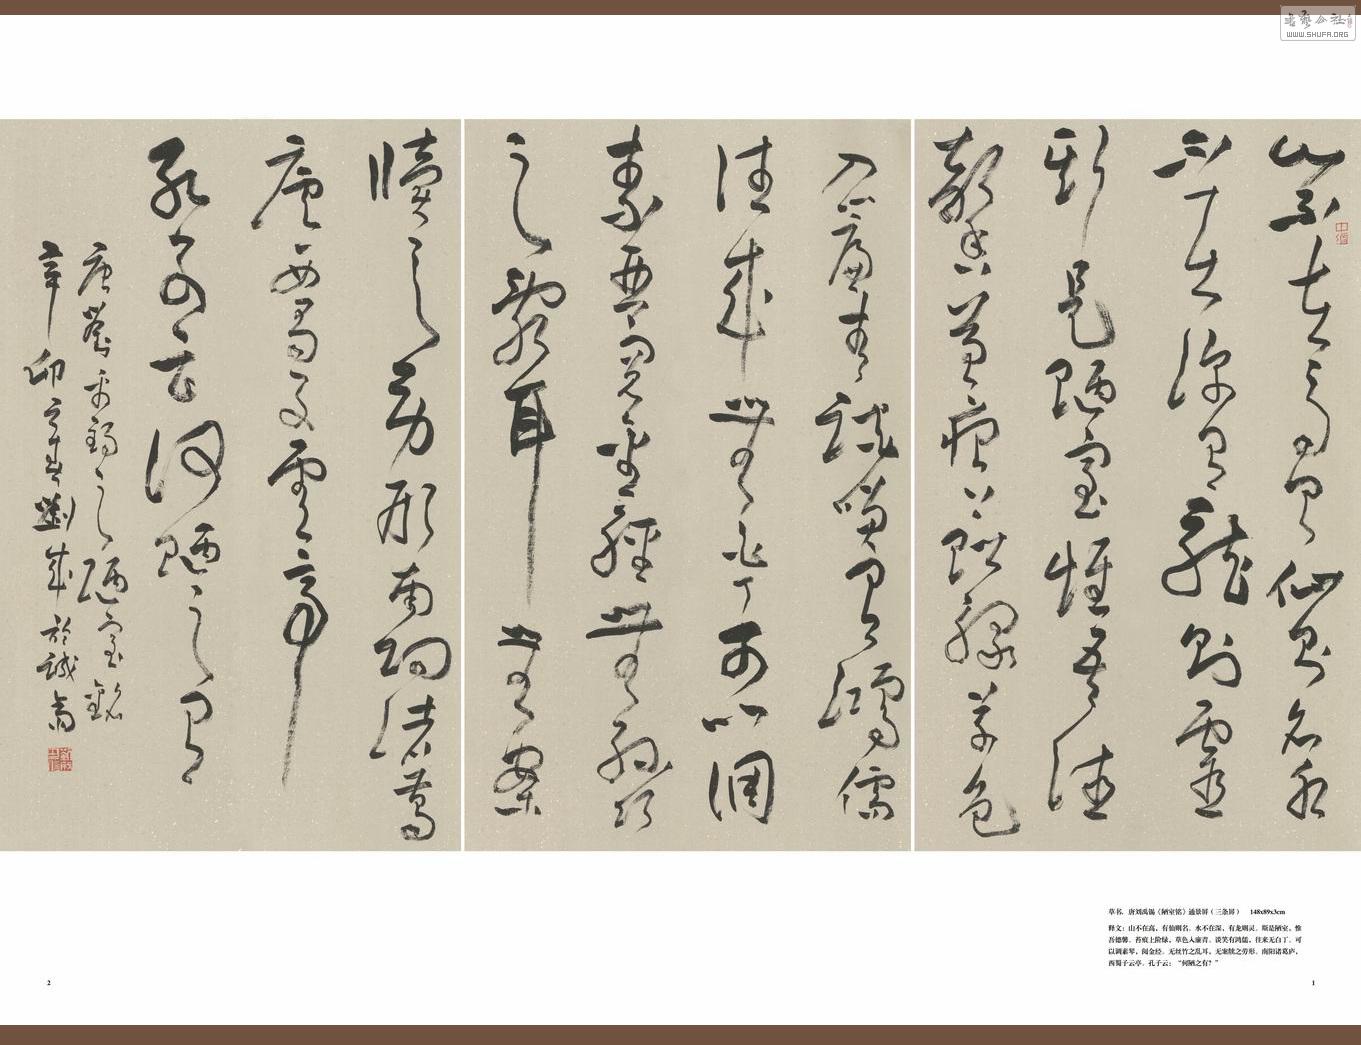 书艺公社
WWW.SHUFA.ORG
山不在高有仙則名水
不在深有龍則靈
斯是陋室惟吾德
馨苔痕上階綠草色
入簾青談笑有鴻儒
往來無白丁可以調
素琴閱金經無絲竹
之亂耳無案
牘之勞形南陽諸葛
廬西蜀子雲亭
孔子云何陋之有
唐劉禹錫之陋室銘
辛卯春劉成於誠齋
草书．唐刘禹锡《陋室铭》通景屏（三条屏） 148x89x3cm
释文：山不在高，有仙则名。水不在深，有龙则灵。斯是陋室，惟
吾德馨。苔痕上阶绿，草色入廉青。谈笑有鸿儒，往来无白丁。可
以调素琴，阅金经。无丝竹之乱耳，无案牍之劳形。南阳诸葛庐，
西蜀子云亭。孔子云：“何陋之有？”
2
1